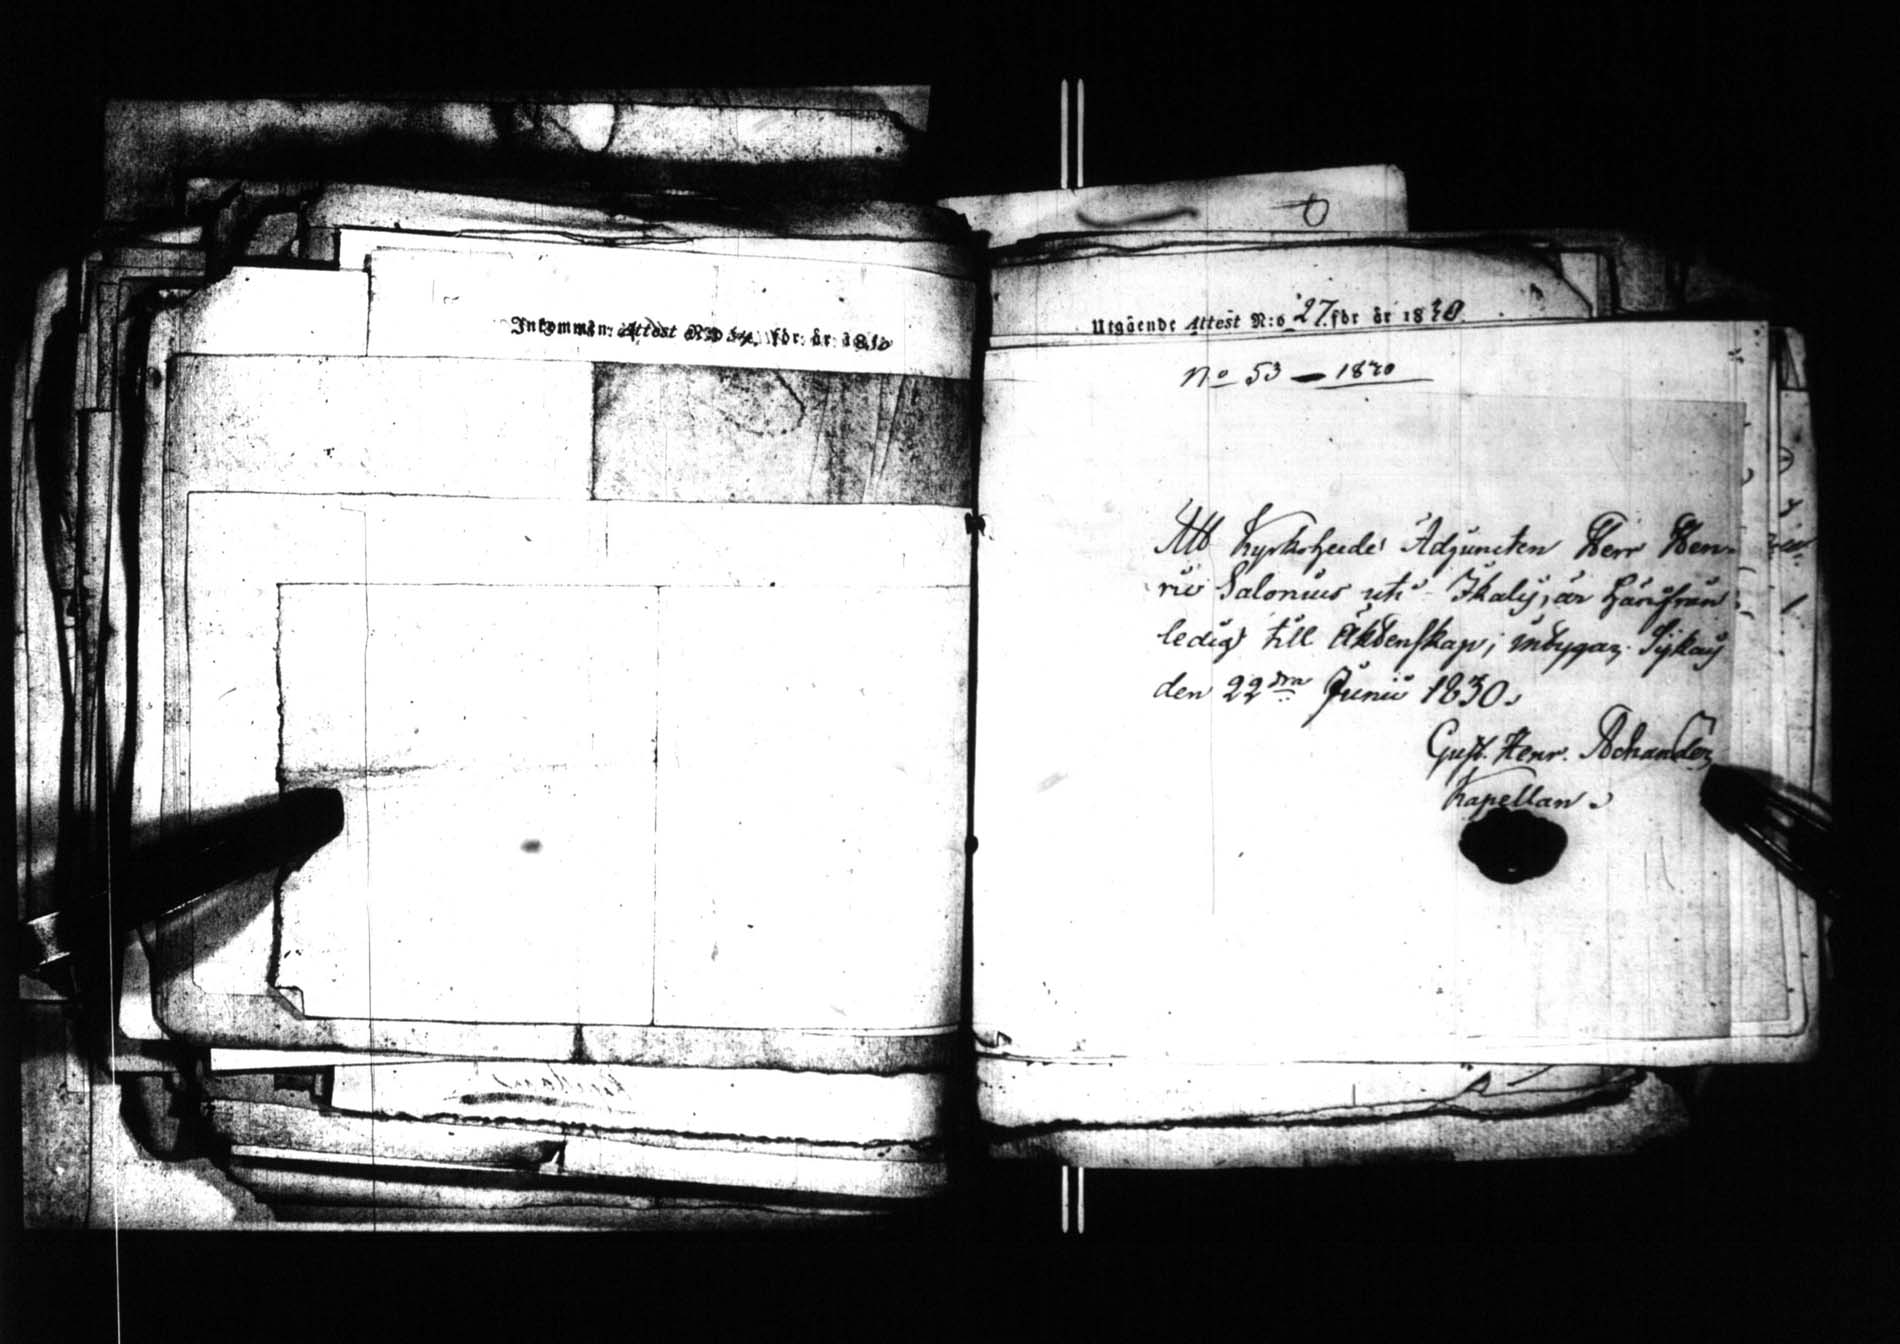 Inkomman: Attest N:o för: år: 18
Utgående Attest N:o 27. för år 1830.
No 53 — 1830
Att Kyrkoherde Adjuncten Herr Hen-
ric Salonius uti Ikalis, är härifrån
ledig till Äktenskap; intygar. Tyrkay
den 22dra Junii 1830.
Gust. Henr.
Kapellan.